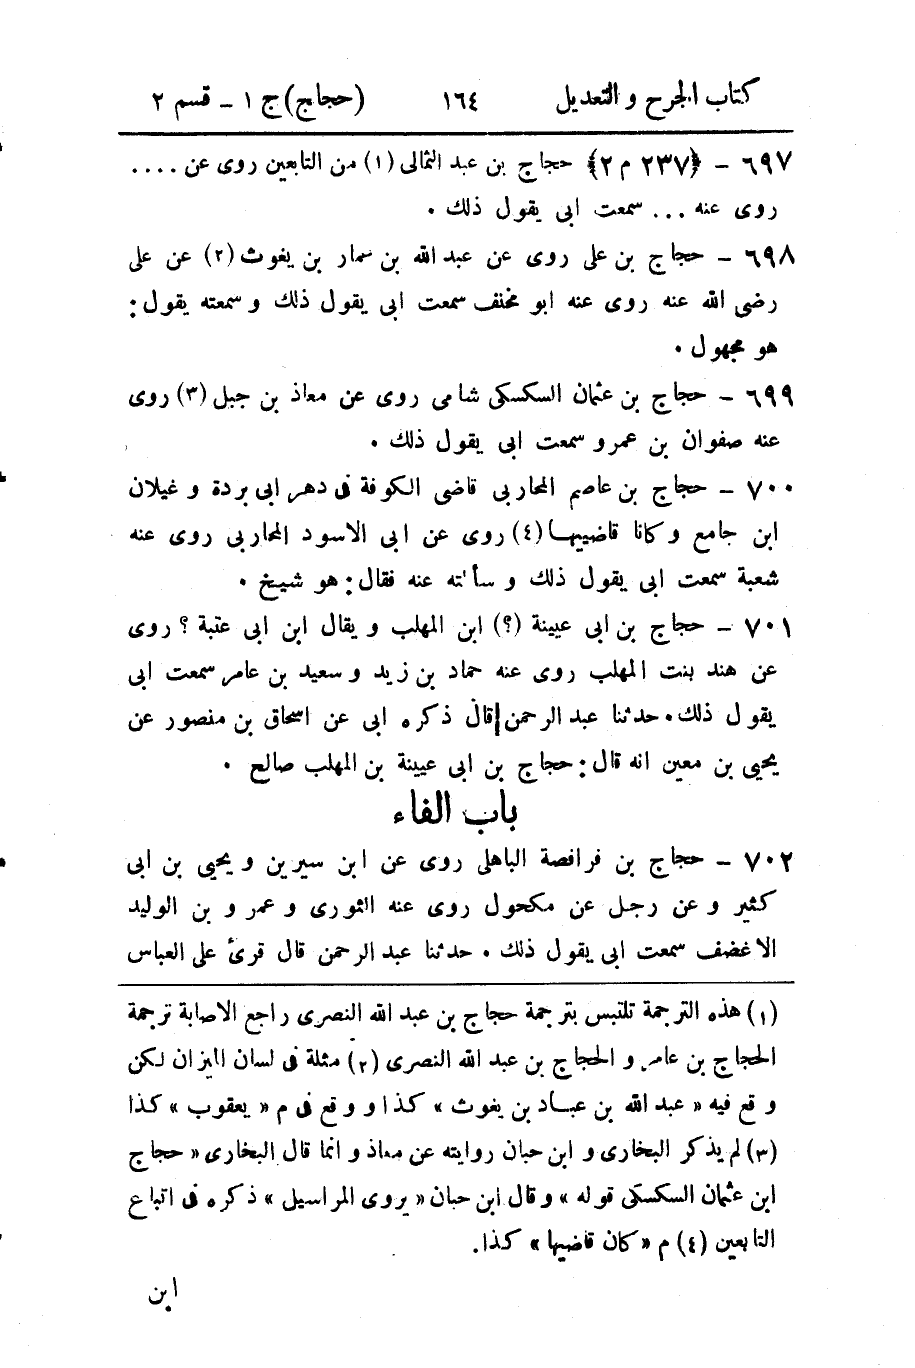 كتاب الجرح و التعديل ١٦٤ (حجاج) ج ١ - قسم ٢
٦٩٧ - ﴿٢٣٧ م ٢﴾ حجاج بن عبد الثمالى (١) من التابعين روى عن ....
روى عنه ... سمعت ابى يقول ذلك .
٦٩٨ - حجاج بن على روى عن عبد الله بن سمار بن يغوث (٢) عن على
رضى الله عنه روى عنه ابو مخنف سمعت ابى يقول ذلك و سمعته يقول:
هو مجهول .
٦٩٩ - حجاج بن عثمان السكسكى شامى روى عن معاذ بن جبل (٣) روى
عنه صفوان بن عمرو سمعت ابى يقول ذلك .
٧٠٠ - حجاج بن عاصم المحاربى قاضى الكوفة فى دهر ابى بردة و غيلان
ابن جامع وكانا قاضييها (٤) روى عن ابى الاسود المحاربى روى عنه
شعبة سمعت ابى يقول ذلك و سألته عنه فقال: هو شيخ .
٧٠١ - حجاج بن ابى عيينة (؟) ابن المهلب و يقال ابن ابى عتبة ؟ روى
عن هند بنت المهلب روى عنه حماد بن زيد و سعيد بن عامر سمعت ابى
يقول ذلك . حدثنا عبد الرحمن قال ذكره ابى عن اسحاق بن منصور عن
يحيى بن معين انه قال: حجاج بن ابى عيينة بن المهلب صالح .
باب الفاء
٧٠٢ - حجاج بن فرافصة الباهلى روى عن ابن سيرين و يحيى بن ابى
كثير و عن رجل عن مكحول روى عنه الثورى و عمرو بن الوليد
الاغضف سمعت ابى يقول ذلك . حدثنا عبد الرحمن قال قرئ على العباس
(١) هذه الترجمة تلتبس بترجمة حجاج بن عبد الله النصرى راجع الاصابة ترجمة
الحجاج بن عامر و الحجاج بن عبد الله النصرى (٢) مثلة فى لسان الميزان لكن
وقع فيه « عبد الله بن عباد بن يغوث » كذا و وقع فى م « يعقوب » كذا
(٣) لم يذكر البخارى و ابن حبان روايته عن معاذ و انما قال البخارى « حجاج
ابن عثمان السكسكى قوله » و قال ابن حبان « يروى المراسيل » ذكره فى اتباع
التابعين (٤) م « كان قاضيها » كذا.
ابن